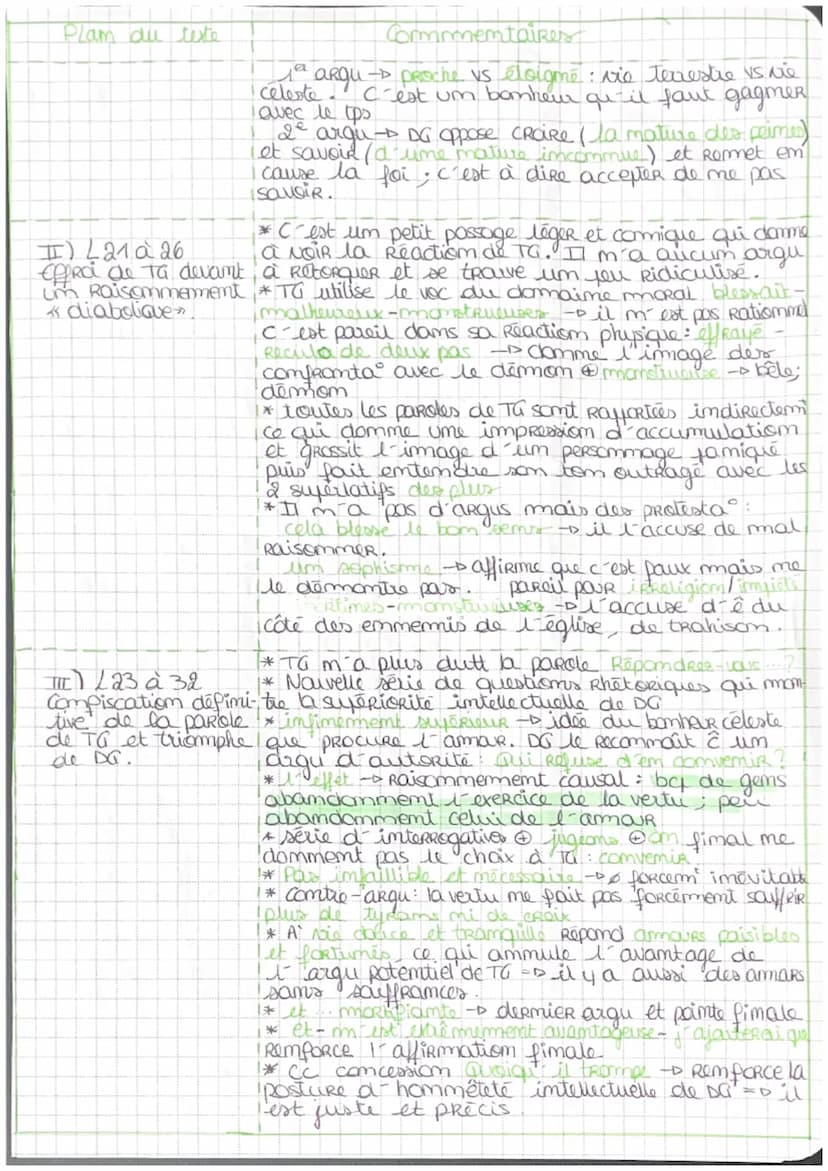 Plan du texte
Commentaires
1er argu → proche vs éloigné : vie terrestre vs vie
céleste. C'est un bonheur qu'il faut gagner
avec le tps
2e argu → DG oppose croire (la nature des peines)
et savoir (d'une nature inconnue) et remet en
cause la foi ; c'est à dire accepter de ne pas
savoir.
II) L21 à 26
Effroi de TG devant
un raisonnement
« diabolique ».
* C'est un petit passage léger et comique qui donne
à voir la réaction de TG. Il n'a aucun argu
à rétorquer et se trouve un peu ridiculisé.
* TG utilise le voc du domaine moral blessait-
malheureux-monstrueuses → il n'est pas rationnel
c'est pareil dans sa réaction physique : effrayé -
recula de deux pas → donne l'image des
confronta° avec le démon ⊕ monstrueuse → bête;
démon
* toutes les paroles de TG sont rapportées indirectemt
ce qui donne une impression d'accumulation
et grossit l'image d'un personnage
puis fait entendre son ton outragé avec les
2 superlatifs des plus
* Il n'a pas d'argus mais des protesta° :
cela blesse le bon sens → il l'accuse de mal
raisonner.
un sophisme → affirme que c'est faux mais ne
le démontre pas. pareil pour irréligion/impiété
-monstrueuses → l'accuse d'ê du
côté des ennemis de l'église, de trahison.
III) L23 à 32
Confiscation défini-
tive de la parole
de TG et triomphe
de DG.
* TG n'a plus dutt la parole Répondrez-vous...?
* Nouvelle série de questions rhétoriques qui mon-
tre la supériorité intellectuelle de DG
* infiniment supérieur → idée du bonheur céleste
que procure l'amour. DG le reconnaît ĉ un
argu d'autorité : Qui refuse d'en convenir ?
* l'effet → raisonnement causal : bcp de gens
abandonnent l'exercice de la vertu ; peu
abandonnent celui de l'amour
* série d'interrogatives ⊕ jugeons ⊕ on final ne
donnent pas le choix à TG : convenir
* Pas infaillible et nécessaire → ø forcemt inévitable
* contre-argu : la vertu ne fait pas forcément souffrir
plus de tyrans ni de croix
* A' vie douce et tranquille répond amours paisibles
et fortunés, ce qui annule l'avantage de
l'argu potentiel de TG => il y a aussi des amours
sans souffrances.
* et... mortifiante → dernier argu et pointe finale
* et - m'est extrêmement avantageuse - j'ajouterai que
remforce l'affirmation finale
* CC concession Quoiqu'il trompe → remforce la
posture d'honnêteté intellectuelle de DG => il
est juste et précis.